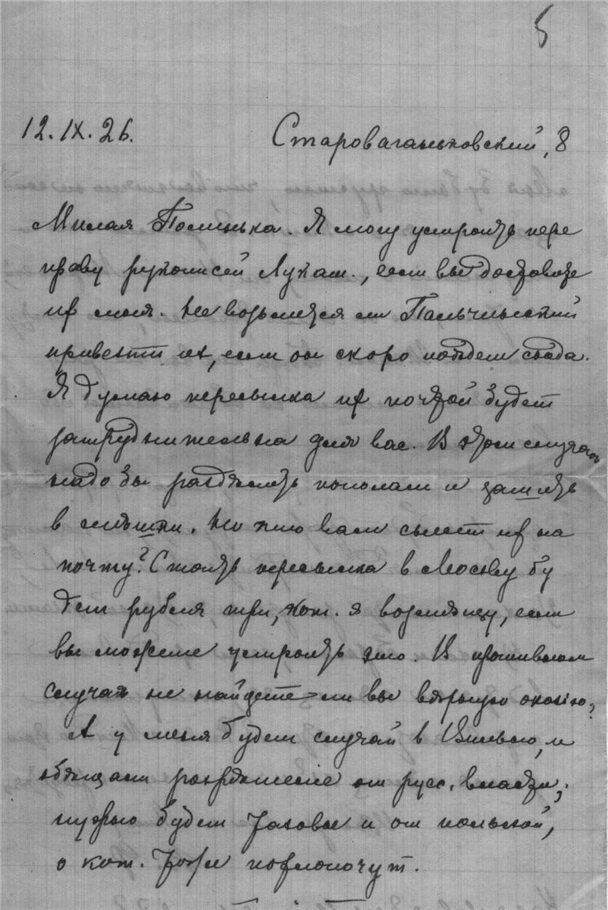 5
12.IX.26.
Староваганьковский, 8
Милая Полинька. Я могу устроить пере
праву рукописей Лукаш., если вы доставите
их мне. Не возьмется ли Пальчинский
привезти их, если он скоро поедет сюда.
Я думаю пересылка их почтой будет
затруднительна для вас. В этом случае
надо бы разделить пополам и зашить
в мешки. Но кто вам снесет их на
почту? Стоить пересылка в Москву бу
дет рубля три, кот. я возмещу, если
вы можете устроить это. В противном
случае не найдете ли вы верную оказию?
А у меня будет случай в Вильно, и
обещают разрешение от русс. власти;
нужно будет таковое и от польской,
о кот. тоже похлопочут.